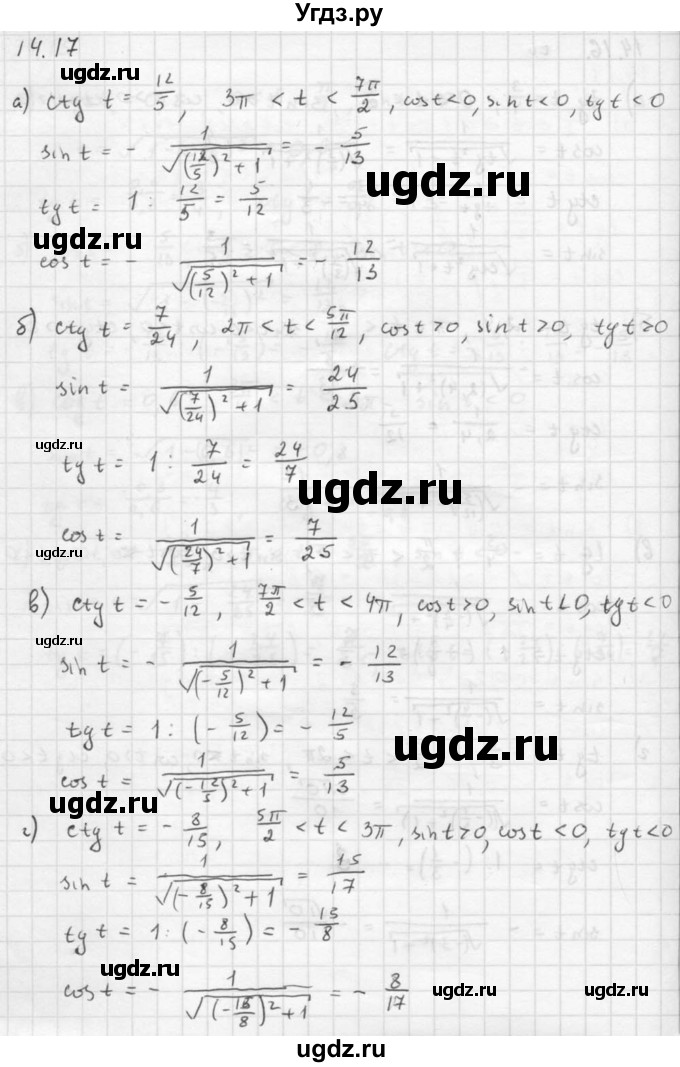 Угдз.ру
14.17
а) ctg t = 12/5, 3π < t < 7π/2, cos t < 0, sin t < 0, tg t < 0
sin t = - 1/√((12/5)² + 1) = - 5/13
ugdz.ru
tg t = 1 : 12/5 = 5/12
ugdz.ru
cos t = - 1/√((5/12)² + 1) = - 12/13
б) ctg t = 7/24, 2π < t < 5π/12, cos t > 0, sin t > 0, tg t > 0
sin t = 1/√((7/24)² + 1) = 24/25
ugdz.ru
tg t = 1 : 7/24 = 24/7
ugdz.ru
cos t = 1/√((24/7)² + 1) = 7/25
ugdz.ru
в) ctg t = - 5/12, 7π/2 < t < 4π, cos t > 0, sin t < 0, tg t < 0
ugdz.ru
sin t = - 1/√((-5/12)² + 1) = - 12/13
tg t = 1 : (- 5/12) = - 12/5
ugdz.ru
cos t = 1/√((-12/5)² + 1) = 5/13
ugdz.ru
г) ctg t = - 8/15, 5π/2 < t < 3π, sin t > 0, cos t < 0, tg t < 0
sin t = 1/√((-8/15)² + 1) = 15/17
tg t = 1 : (- 8/15) = - 15/8
ugdz.ru
cos t = - 1/√((-15/8)² + 1) = - 8/17
ugdz.ru
ugdz.ru
ugdz.ru